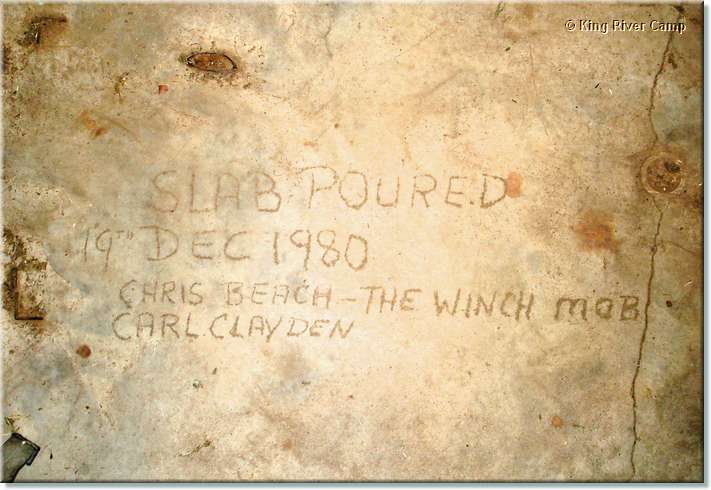 © King River Camp
SLAB POURED
19TH DEC 1980
CHRIS BEACH - THE WINCH MOB
CARL CLAYDEN